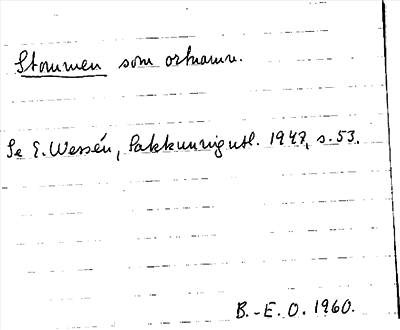 Stommen som ortnamn.
Se E. Wessén, Sakkunnigutl. 1947, s. 53.
B.-E. O. 1960.